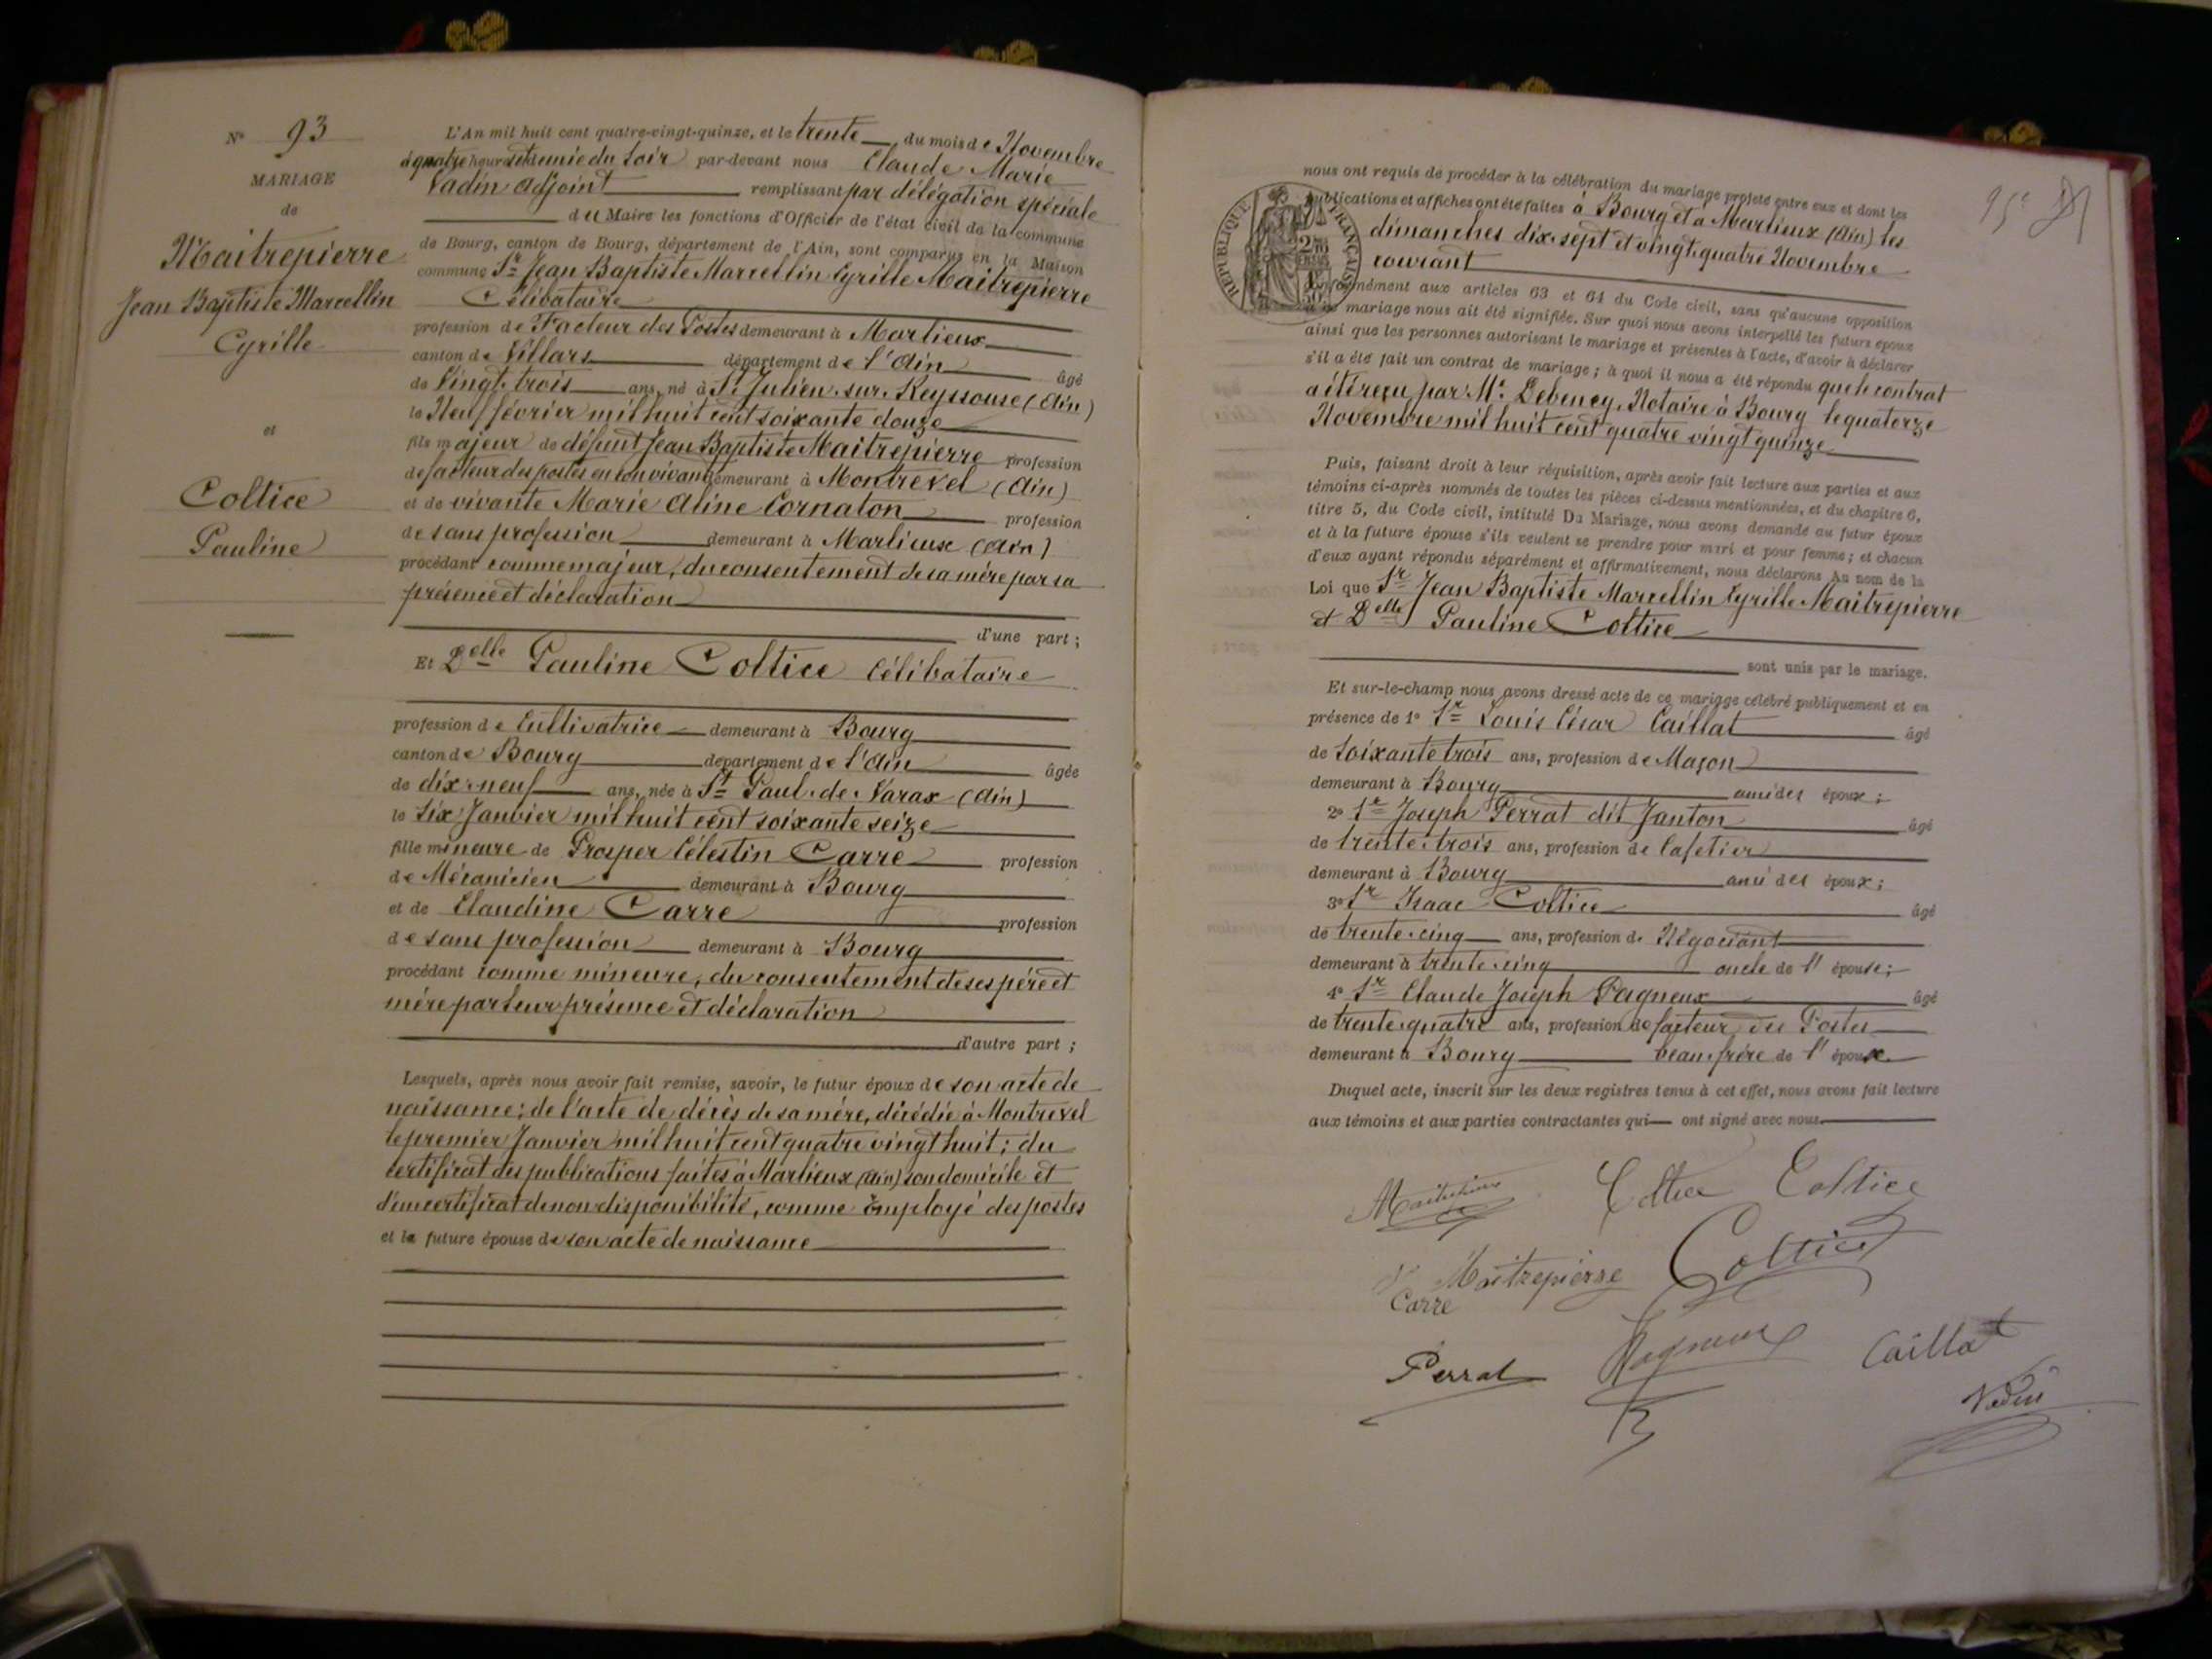 N° 93
MARIAGE
de
Maitrepierre
Jean Baptiste Marcellin
Cyrille
et
Coltice
Pauline
L'An mil huit cent quatre-vingt-quinze, et le trente du mois de Novembre
à quatre heures et demie du soir par-devant nous Claude Marie
Vadin adjoint remplissant par délégation spéciale
du Maire les fonctions d'Officier de l'état civil de la commune
de Bourg, canton de Bourg, département de l'Ain, sont comparus en la Maison
commune Sr Jean Baptiste Marcellin Cyrille Maitrepierre
Célibataire
profession de Facteur des Postes demeurant à Marlieux
canton de Villars département de l'Ain âgé
de Vingt-trois ans, né à St Julien-sur-Reyssouse (Ain)
le Neuf février mil huit cent soixante douze
fils majeur de défunt Jean Baptiste Maitrepierre profession
de facteur des postes en son vivant demeurant à Montrevel (Ain)
et de vivante Marie Aline Cornaton profession
de sans profession demeurant à Marlieux (Ain)
procédant comme majeur, du consentement de sa mère par sa
présence et déclaration
d'une part ;
Et Delle Pauline Coltice Célibataire
profession de Cultivatrice demeurant à Bourg
canton de Bourg département de l'Ain âgée
de dix-neuf ans, née à St Paul-de-Varax (Ain)
le six Janvier mil huit cent soixante seize
fille mineure de Prosper Célestin Carre profession
de Mécanicien demeurant à Bourg
et de Claudine Carre profession
de sans profession demeurant à Bourg
procédant comme mineure, du consentement de ses père et
mère par leur présence et déclaration
d'autre part ;
Lesquels, après nous avoir fait remise, savoir, le futur époux de son acte de
naissance ; de l'acte de décès de sa mère, décédée à Montrevel
le premier Janvier mil huit cent quatre vingt huit ; du
certificat des publications faites à Marlieux (Ain) son domicile et
d'un certificat de non disponibilité, comme Employé des postes
et la future épouse de son acte de naissance
nous ont requis de procéder à la célébration du mariage projeté entre eux et dont les
publications et affiches ont été faites à Bourg et à Marlieux (Ain) les
dimanches dix-sept et vingt-quatre Novembre
courant
RÉPUBLIQUE FRANÇAISE
conformément aux articles 63 et 64 du Code civil, sans qu'aucune opposition
à ce mariage nous ait été signifiée. Sur quoi nous avons interpellé les futurs époux
ainsi que les personnes autorisant le mariage et présentes à l'acte, d'avoir à déclarer
s'il a été fait un contrat de mariage ; à quoi il nous a été répondu que le contrat
a été reçu par Me Debeney, Notaire à Bourg le quatorze
Novembre mil huit cent quatre vingt quinze
Puis, faisant droit à leur réquisition, après avoir fait lecture aux parties et aux
témoins ci-après nommés de toutes les pièces ci-dessus mentionnées, et du chapitre 6,
titre 5, du Code civil, intitulé Du Mariage, nous avons demandé au futur époux
et à la future épouse s'ils veulent se prendre pour mari et pour femme ; et chacun
d'eux ayant répondu séparément et affirmativement, nous déclarons Au nom de la
Loi que Sr Jean Baptiste Marcellin Cyrille Maitrepierre
et Delle Pauline Coltice
sont unis par le mariage.
Et sur-le-champ nous avons dressé acte de ce mariage célébré publiquement et en
présence de 1° Sr Louis César Caillat âgé
de soixante trois ans, profession de Maçon
demeurant à Bourg ami des époux ;
2° Sr Joseph Perrat dit Janton âgé
de trente-trois ans, profession de Cafetier
demeurant à Bourg ami des époux ;
3° Sr Isaac Coltice âgé
de trente-cinq ans, profession de Négociant
demeurant à trente-cinq oncle de l'épouse ;
4° Sr Claude Joseph Pagneux âgé
de trente-quatre ans, profession de facteur des Postes
demeurant à Bourg beau-frère de l'épouse
Duquel acte, inscrit sur les deux registres tenus à cet effet, nous avons fait lecture
aux témoins et aux parties contractantes qui ont signé avec nous.
Coltice Coltice
Maitrepierre Coltice
Carre
Perrat Pagneux Caillat
Vadin